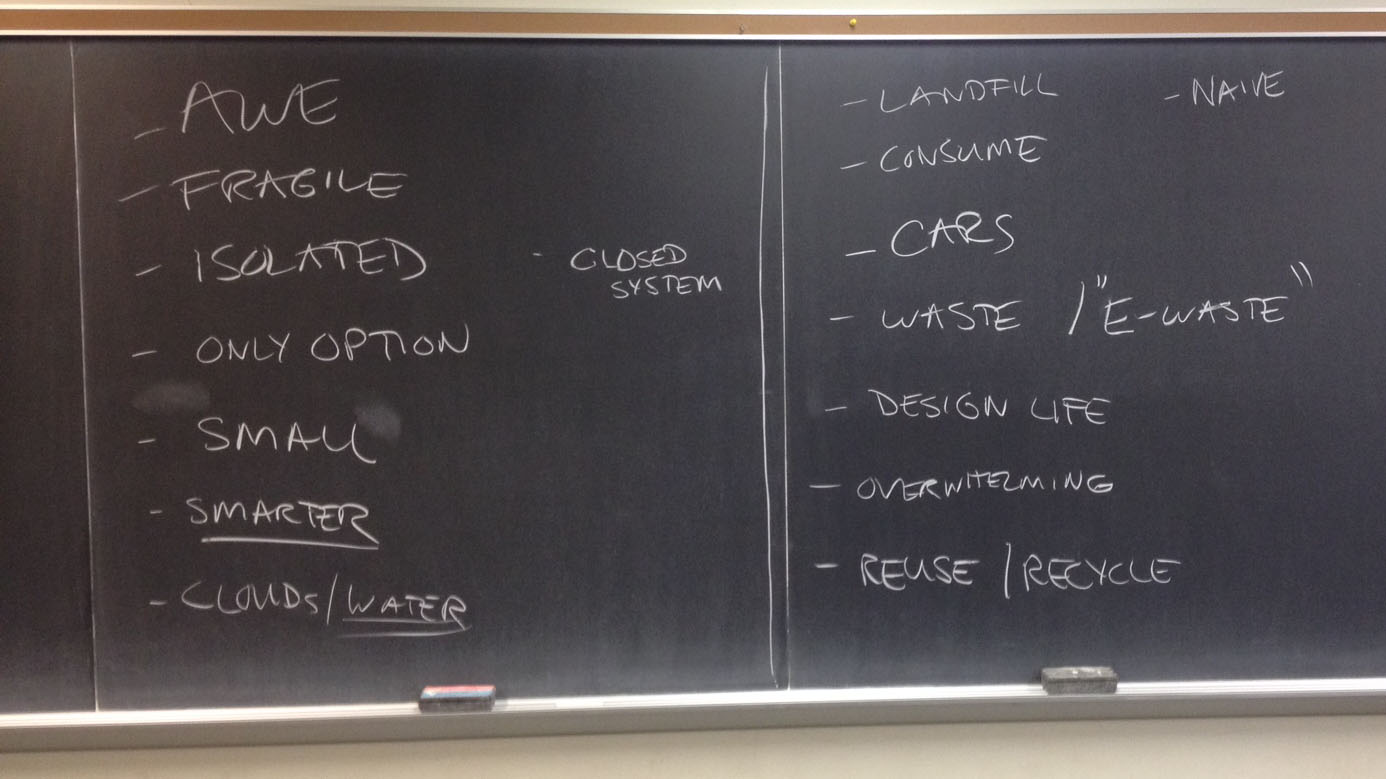 - AWE
- FRAGILE
- ISOLATED
- CLOSED
SYSTEM
- ONLY OPTION
- SMALL
- SMARTER
- CLOUDS/WATER
- LANDFILL
- NAIVE
- CONSUME
- CARS
- WASTE / "E-WASTE"
- DESIGN LIFE
- OVERWHELMING
- REUSE / RECYCLE